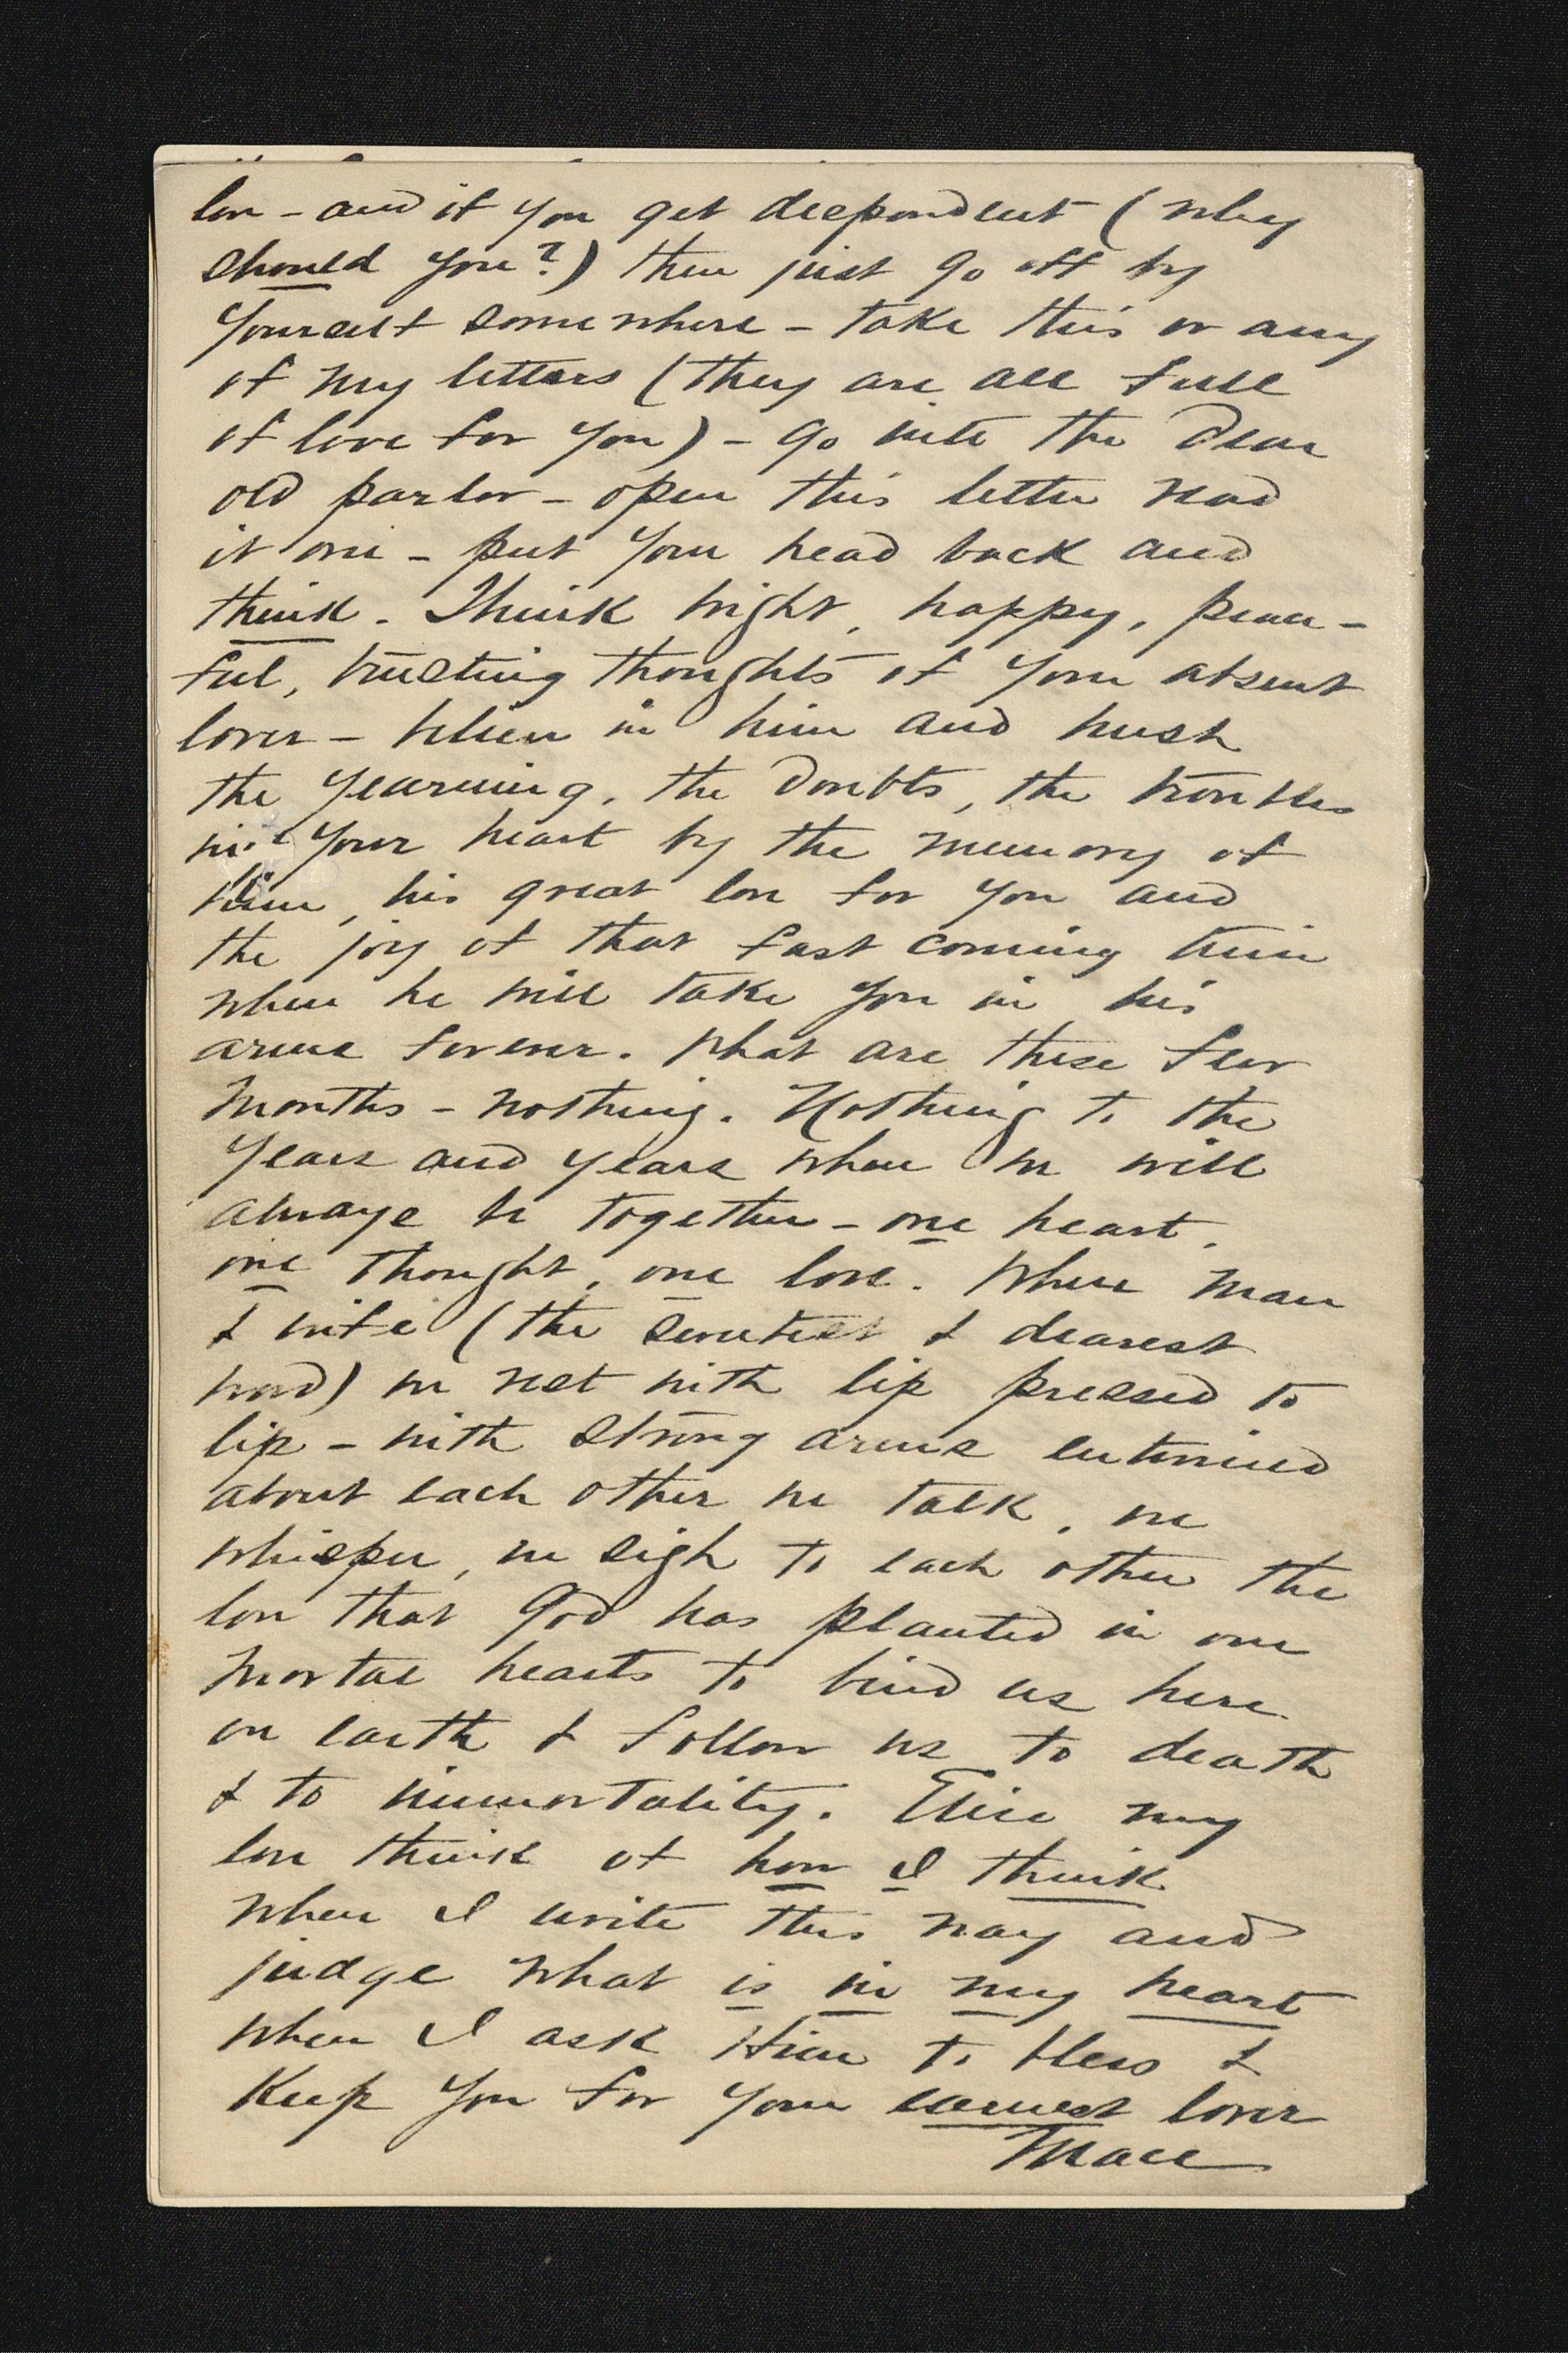 love - and if you get despondent (why
should you?) then just go off by
yourself somewhere - take this or any
of my letters (they are all full
of love for you) - go into the dear
old parlor - open this letter read
it over - put your head back and
think. Think bright, happy, peace-
ful, trusting thoughts of your absent
lover - believe in him and hush
the yearning, the doubts, the troubles
in your heart by the memory of
him, his great love for you and
the joy of that fast coming time
when he will take you in his
arms forever. What are these few
months - nothing. Nothing to the
years and years when we will
always be together - one heart,
one thought, one love. When man
& wife (the sweetest & dearest
word) we rest with lip pressed to
lip - with strong arms entwined
about each other we talk, we
whisper, we sigh to each other the
love that God has planted in our
mortal hearts to bind us here
on earth & follow us to death
& to immortality. Elise my
love think of how I think
when I write this way and
judge what is in my heart
when I ask Him to bless &
keep you for your earnest lover
Mace